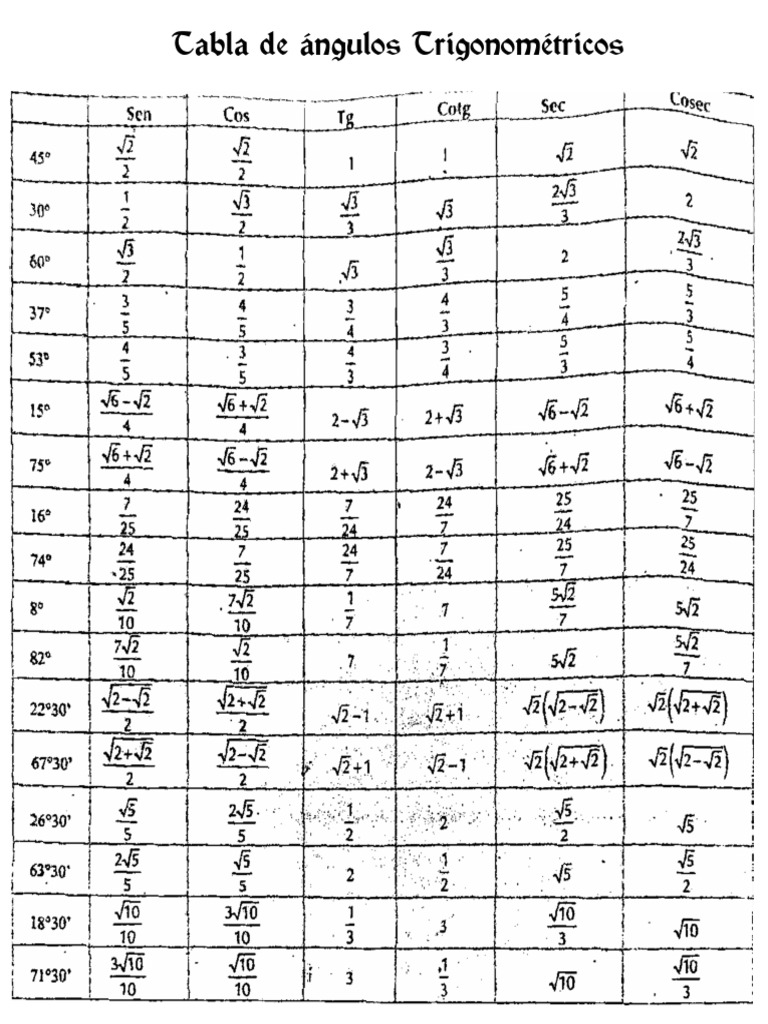 Tabla de ángulos Trigonométricos
Sen Cos Tg Cotg Sec Cosec
45° √2/2 √2/2 1 1 √2 √2
30° 1/2 √3/2 √3/3 √3 2√3/3 2
60° √3/2 1/2 √3 √3/3 2 2√3/3
37° 3/5 4/5 3/4 4/3 5/4 5/3
53° 4/5 3/5 4/3 3/4 5/3 5/4
15° √6−√2/4 √6+√2/4 2−√3 2+√3 √6−√2 √6+√2
75° √6+√2/4 √6−√2/4 2+√3 2−√3 √6+√2 √6−√2
16° 7/25 24/25 7/24 24/7 25/24 25/7
74° 24/25 7/25 24/7 7/24 25/7 25/24
8° √2/10 7√2/10 1/7 7 5√2/7 5√2
82° 7√2/10 √2/10 7 1/7 5√2 5√2/7
22°30' √(2−√2)/2 √(2+√2)/2 √2−1 √2+1 √2(√(2−√2)) √2(√(2+√2))
67°30' √(2+√2)/2 √(2−√2)/2 √2+1 √2−1 √2(√(2+√2)) √2(√(2−√2))
26°30' √5/5 2√5/5 1/2 2 √5/2 √5
63°30' 2√5/5 √5/5 2 1/2 √5 √5/2
18°30' √10/10 3√10/10 1/3 3 √10/3 √10
71°30' 3√10/10 √10/10 3 1/3 √10 √10/3